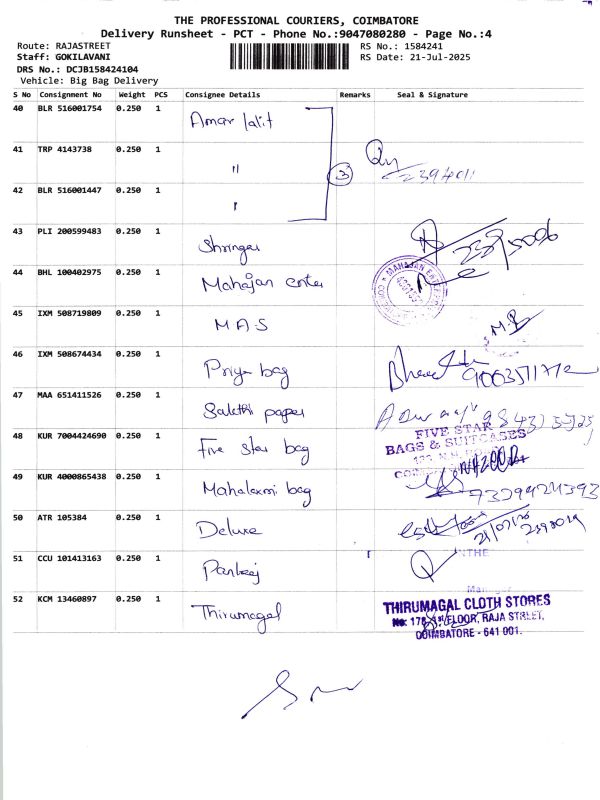 THE PROFESSIONAL COURIERS, COIMBATORE
Delivery Runsheet - PCT - Phone No.:9047080280 - Page No.:4
Route: RAJASTREET
RS No.: 1584241
Staff: GOKILAVANI
RS Date: 21-Jul-2025
DRS No.: DCJB158424104
Vehicle: Big Bag Delivery
S No Consignment No Weight PCS Consignee Details Remarks Seal & Signature
40 BLR 516001754 0.250 1 Amar lalit
41 TRP 4143738 0.250 1 " 3 2394011
42 BLR 516001447 0.250 1 "
43 PLI 200599483 0.250 1 Shringar
44 BHL 100402975 0.250 1 Mahajan enter
45 IXM 508719809 0.250 1 M.A.S
46 IXM 508674434 0.250 1 Priya bag
47 MAA 651411526 0.250 1 Sakthi paper
48 KUR 7004424690 0.250 1 Five star bag FIVE STAR
BAGS & SUITCASES
49 KUR 4000865438 0.250 1 Mahalaxmi bag
50 ATR 105384 0.250 1 Deluxe
51 CCU 101413163 0.250 1 Pankaj
52 KCM 13460897 0.250 1 Thirumagal
Manager
THIRUMAGAL CLOTH STORES
FLOOR, RAJA STREET,
COIMBATORE - 641 001.